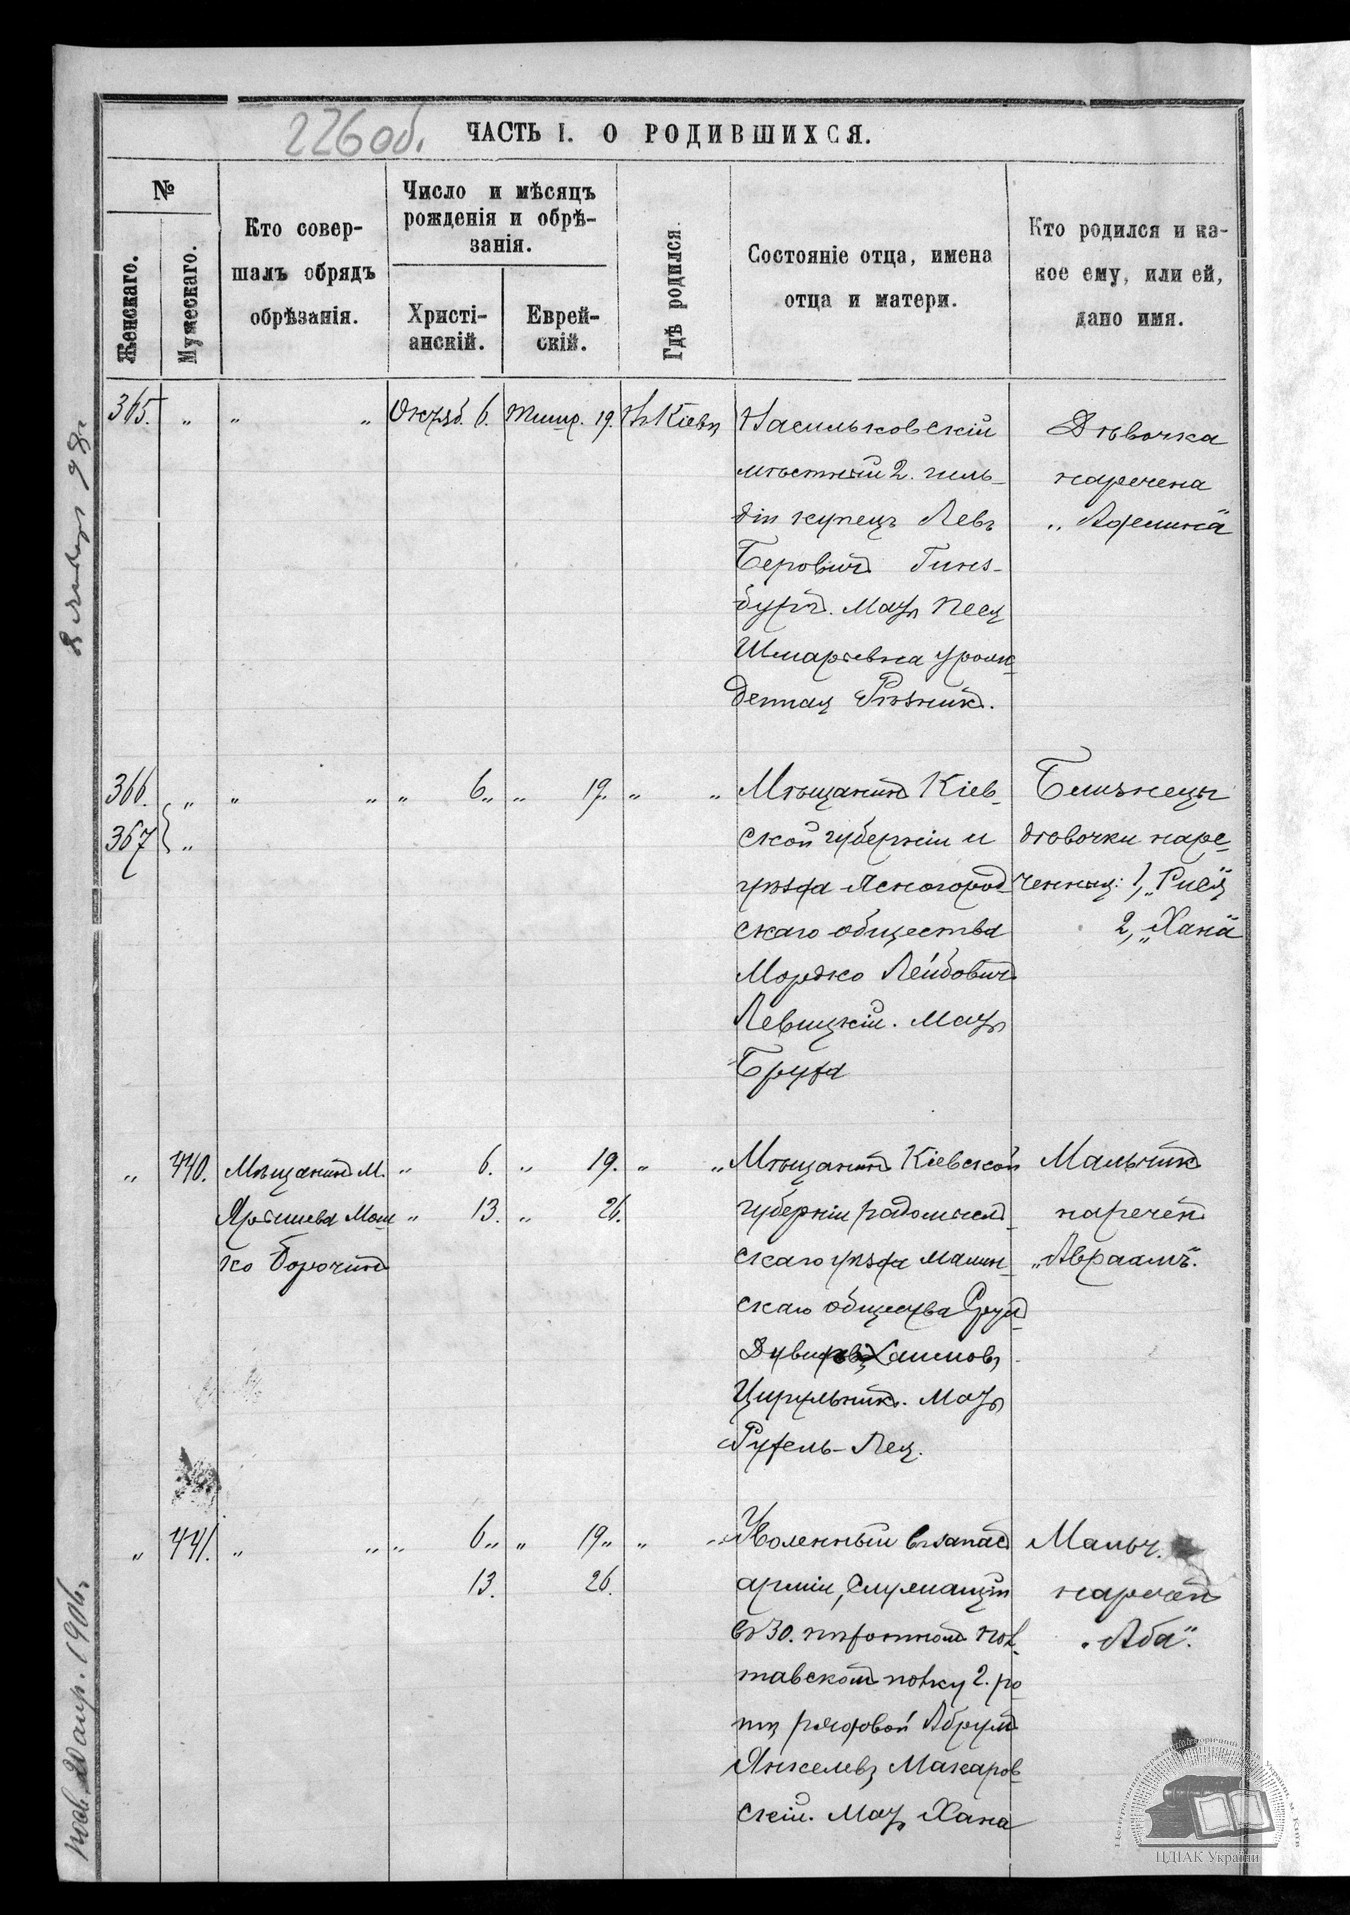 226 об.
ЧАСТЬ I. О РОДИВШИХСЯ.
№
Женскаго.
Мужескаго.
Кто совер-
шалъ обрядъ
обрѣзанія.
Число и мѣсяцъ
рожденія и обрѣ-
занія.
Христі-
анскій.
Еврей-
скій.
Гдѣ родился.
Состояніе отца, имена
отца и матери.
Кто родился и ка-
кое ему, или ей,
дано имя.
365. „ „ „ Октяб. 6. Тишр. 19. Кіевѣ
Васильковскій
мѣстный 2. гиль-
діи купецъ Левъ
Беровичъ Гинз-
бургъ. Мать Песя
Шмарьевна урож-
денная Рѣзникъ.
Дѣвочка
наречена
„Афелина“
366. „ „ „ „ 6„ „ 19. „ „
367 „
Мѣщанинъ Кіев-
ской губерніи и
уѣзда Ясногород-
скаго общества
Мордко Лейбовичъ
Левицкій. Мать
Бруха
Близнецы
дѣвочки наре-
ченныя: 1, „Рися“
2, „Хана“
„ 440. Мѣщанинъ м. „ 6. „ 19. „ „
Мош- „ 13. „ 26.
ко Борочинъ
Мѣщанинъ Кіевской
губерніи радомысл-
скаго уѣзда Малин-
скаго общества Сруль
Хаимовъ
Цирульникъ. Мать
Рухель-Лея.
Мальчикъ
нареченъ
„Авраамъ“.
„ 441. „ „ „ 6„ „ 19„ „ „
13. 26.
Уволенный въ запасъ
арміи, служащій
въ 30. пѣхотномъ Пол-
тавскомъ полку 2. ро-
ты рядовой Абрумъ
Янкелевъ Макаров-
скій. Мать Хана
Мальч.
нареченъ
„Аба“.
98г.
апр. 1906г.
ЦДІАК України